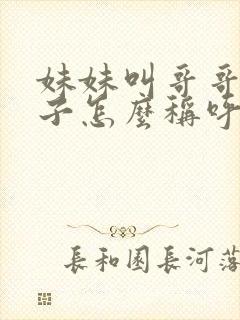 妹妹叫哥哥
子怎麼稱呼
長和園長河落